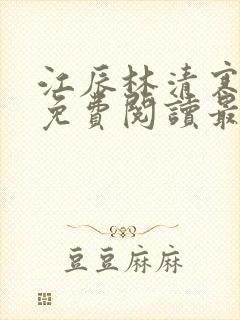 江辰林清寒
免費閱讀最
豆豆麻麻